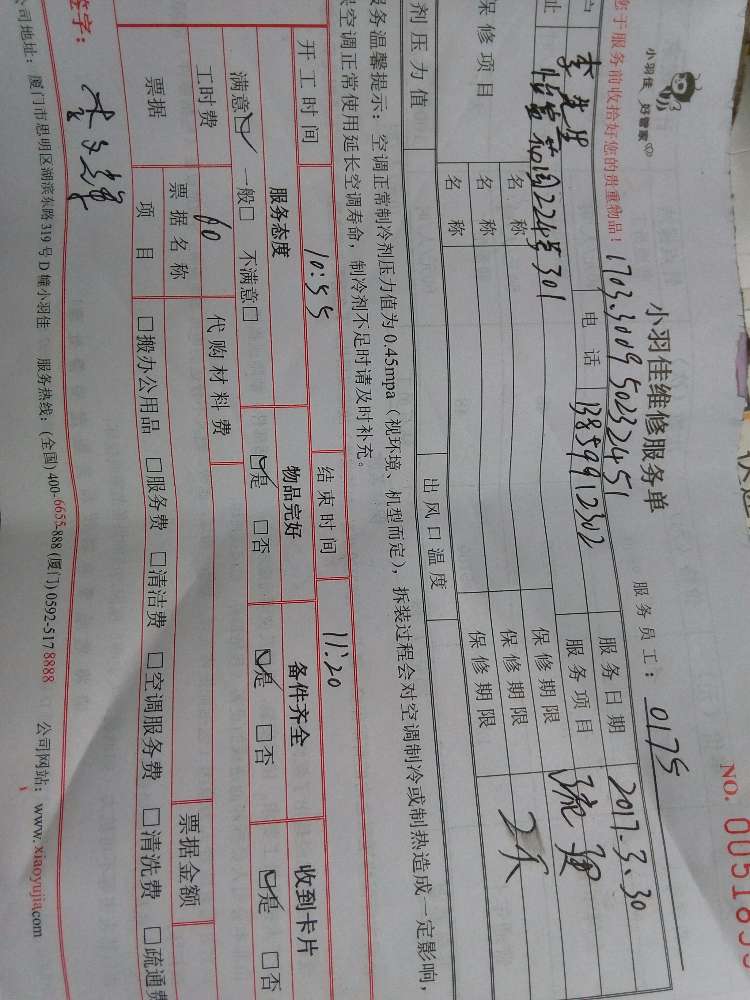 小羽佳 好管家
小羽佳维修服务单
NO. 0051835
您于服务前收拾好您的贵重物品！
170330095023 2451
服务员工： 0175
李先生
电话 13859912302
服务日期 2017.3.30
址 怡富花园224号301
服务项目 疏通
保修项目
名称
保修期限
名称
保修期限 2天
名称
保修期限
剂压力值
出风口温度
务温馨提示：空调正常制冷剂压力值为0.45mpa（视环境、机型而定），拆装过程会对空调制冷或制热造成一定影响，
保空调正常使用延长空调寿命，制冷剂不足时请及时补充。
开工时间 10:55
结束时间 11:20
服务态度
物品完好
备件齐全
收到卡片
满意☑ 一般□ 不满意□
☑是 □否
☑是 □否
☑是 □否
工时费 60
代购材料费
票据
票据名称
票据金额
项目
□搬办公用品 □服务费 □清洁费 □空调服务费 □清洗费 □疏通费
签字：
公司地址：厦门市思明区湖滨东路319号D幢小羽佳 服务热线：(全国) 400-6655-888 (厦门) 0592-5178888 公司网站：www.xiaoyujia.com